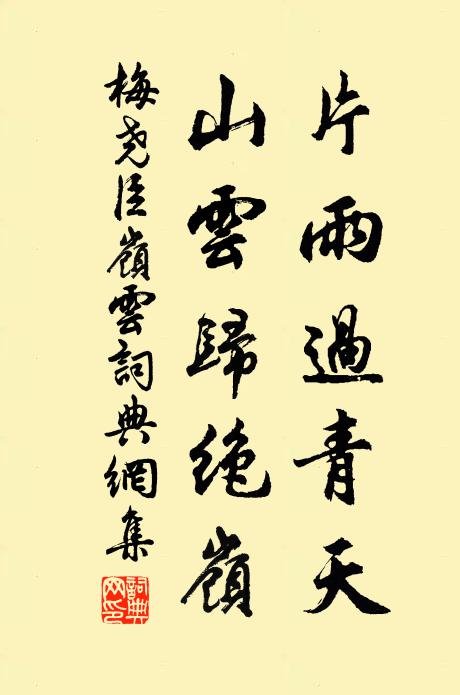 片雨過青天
山雲歸绝嶺
梅堯臣嶺雲詞典網集
詞典
网印